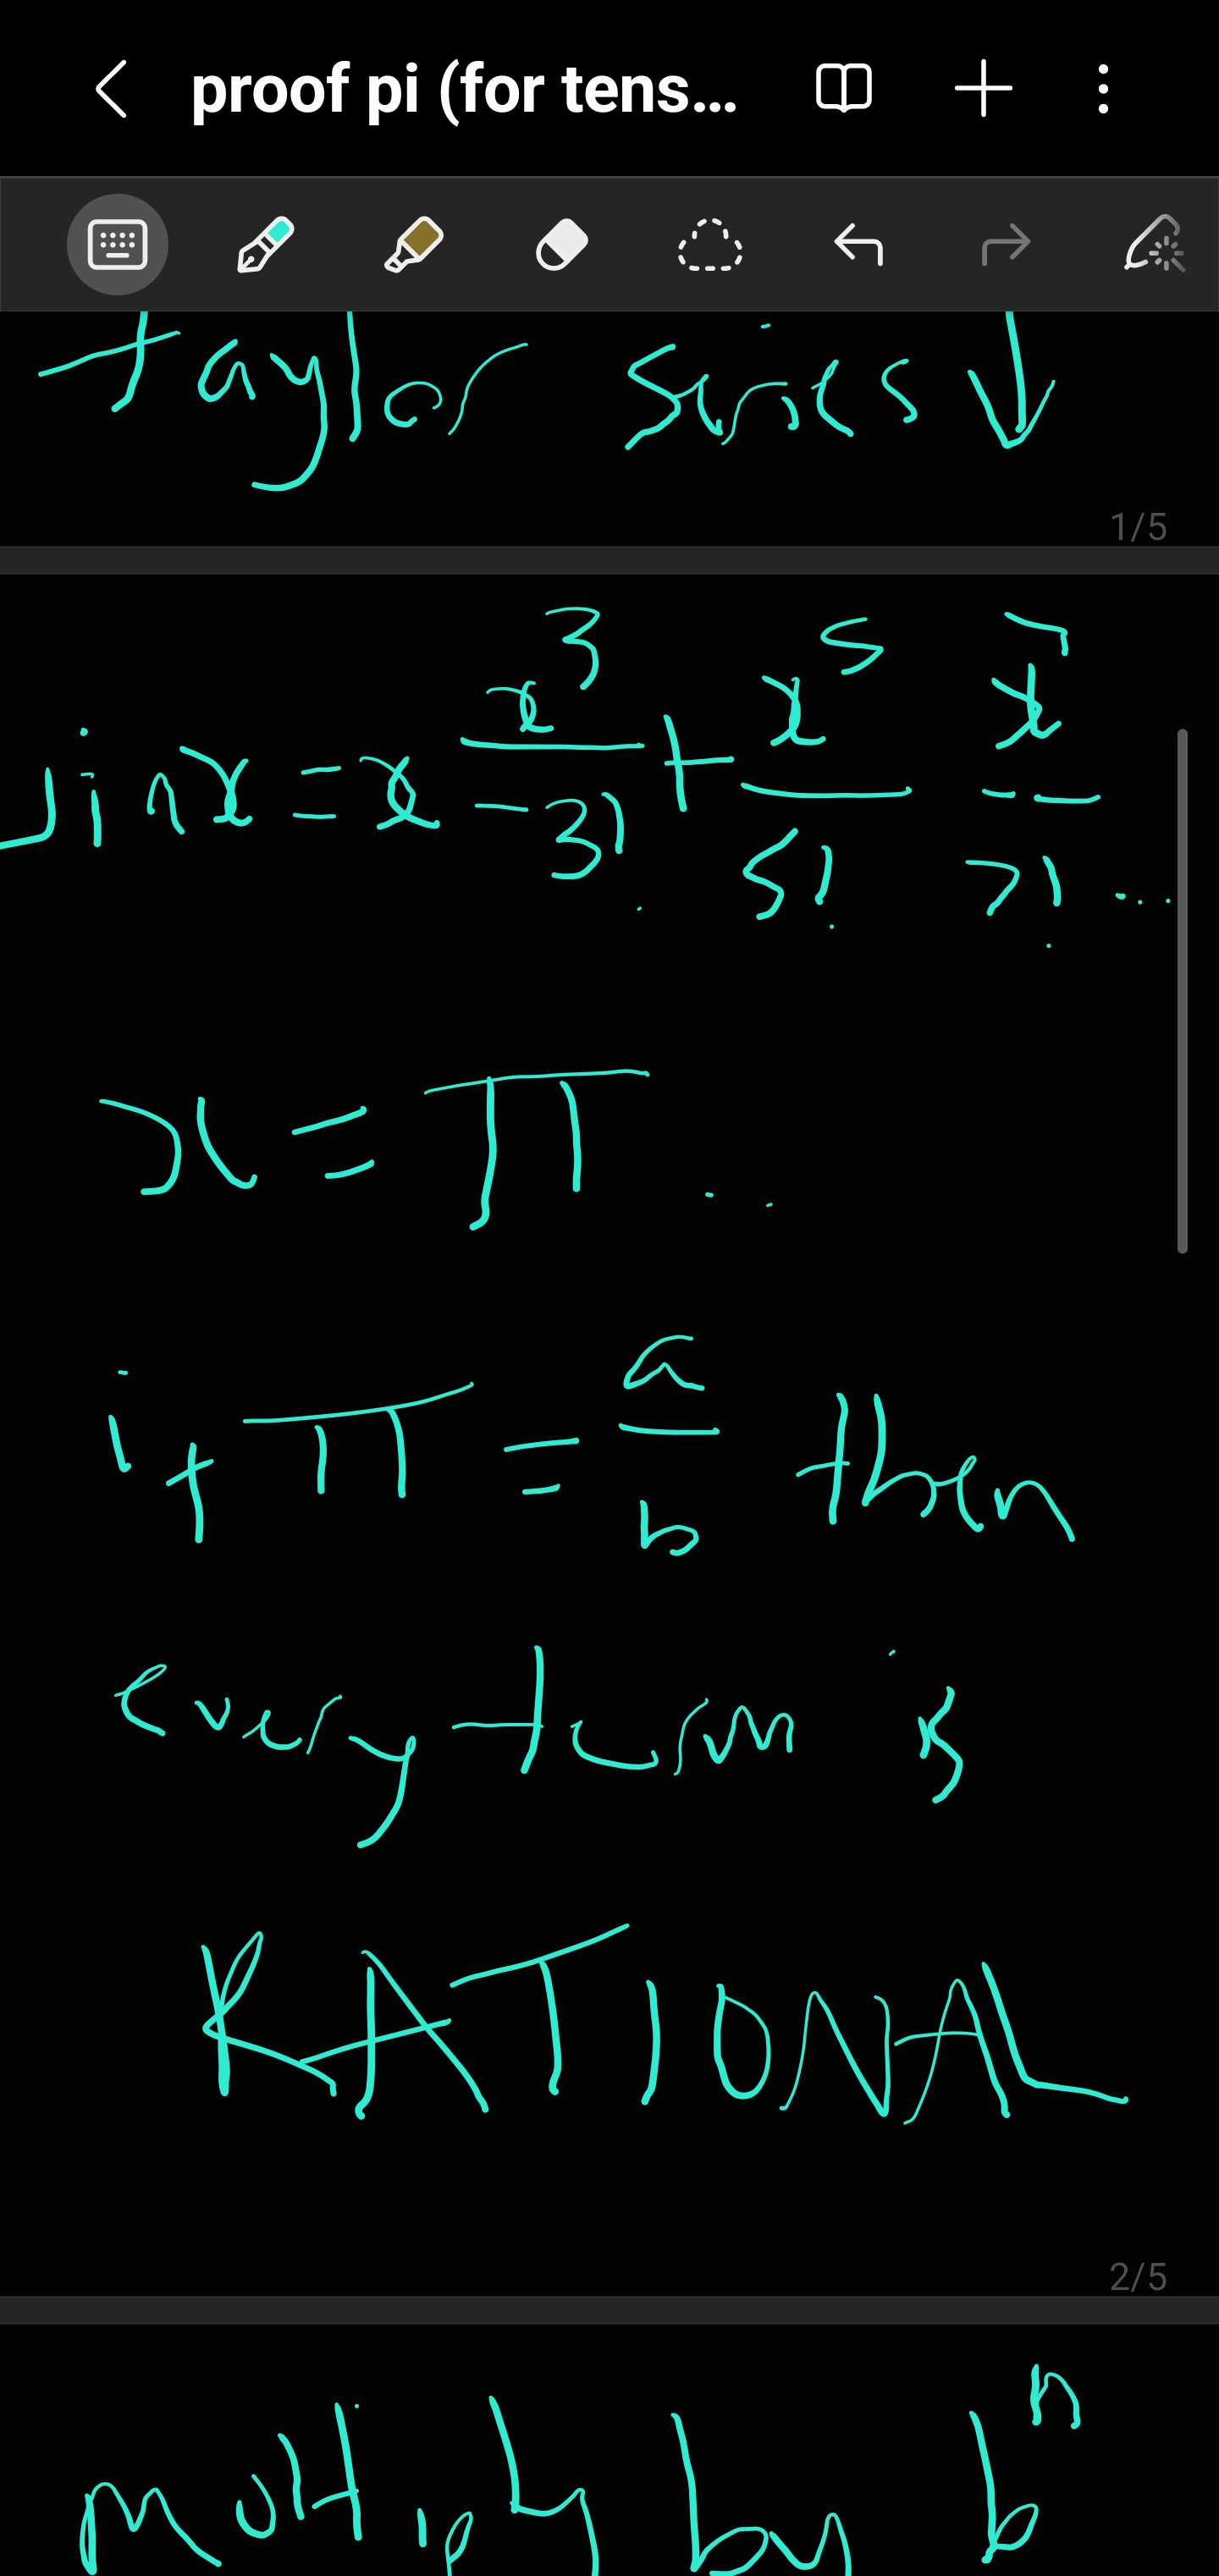 proof pi (for tens...
taylor series ↓
1/5
sin x = x - x³/3! + x⁵/5! - x⁷/7! ...
x = π ..
if π = a/b then
every term is
RATIONAL
2/5
multiply by bⁿ